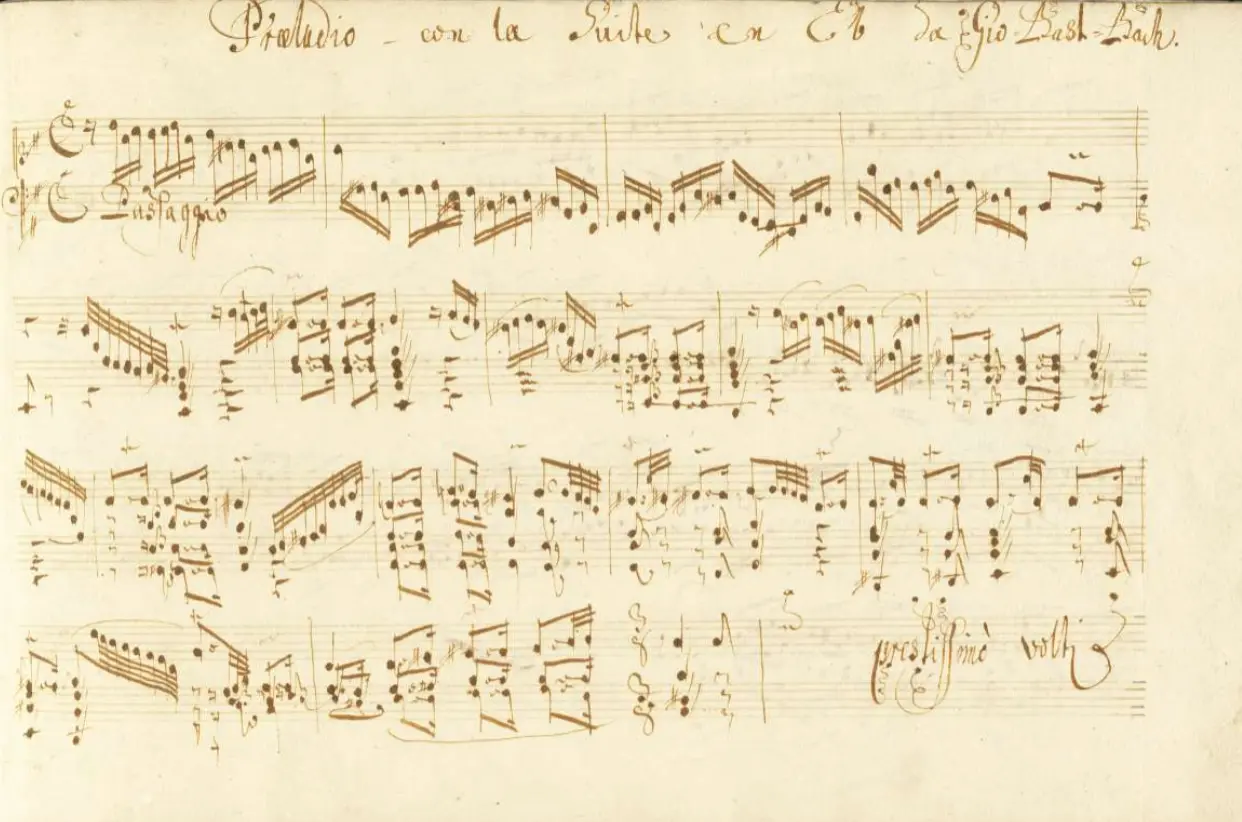 Præludio - con la Suite en Eb da Gio: Bast. Bach.
Passaggio
prestissimò volti